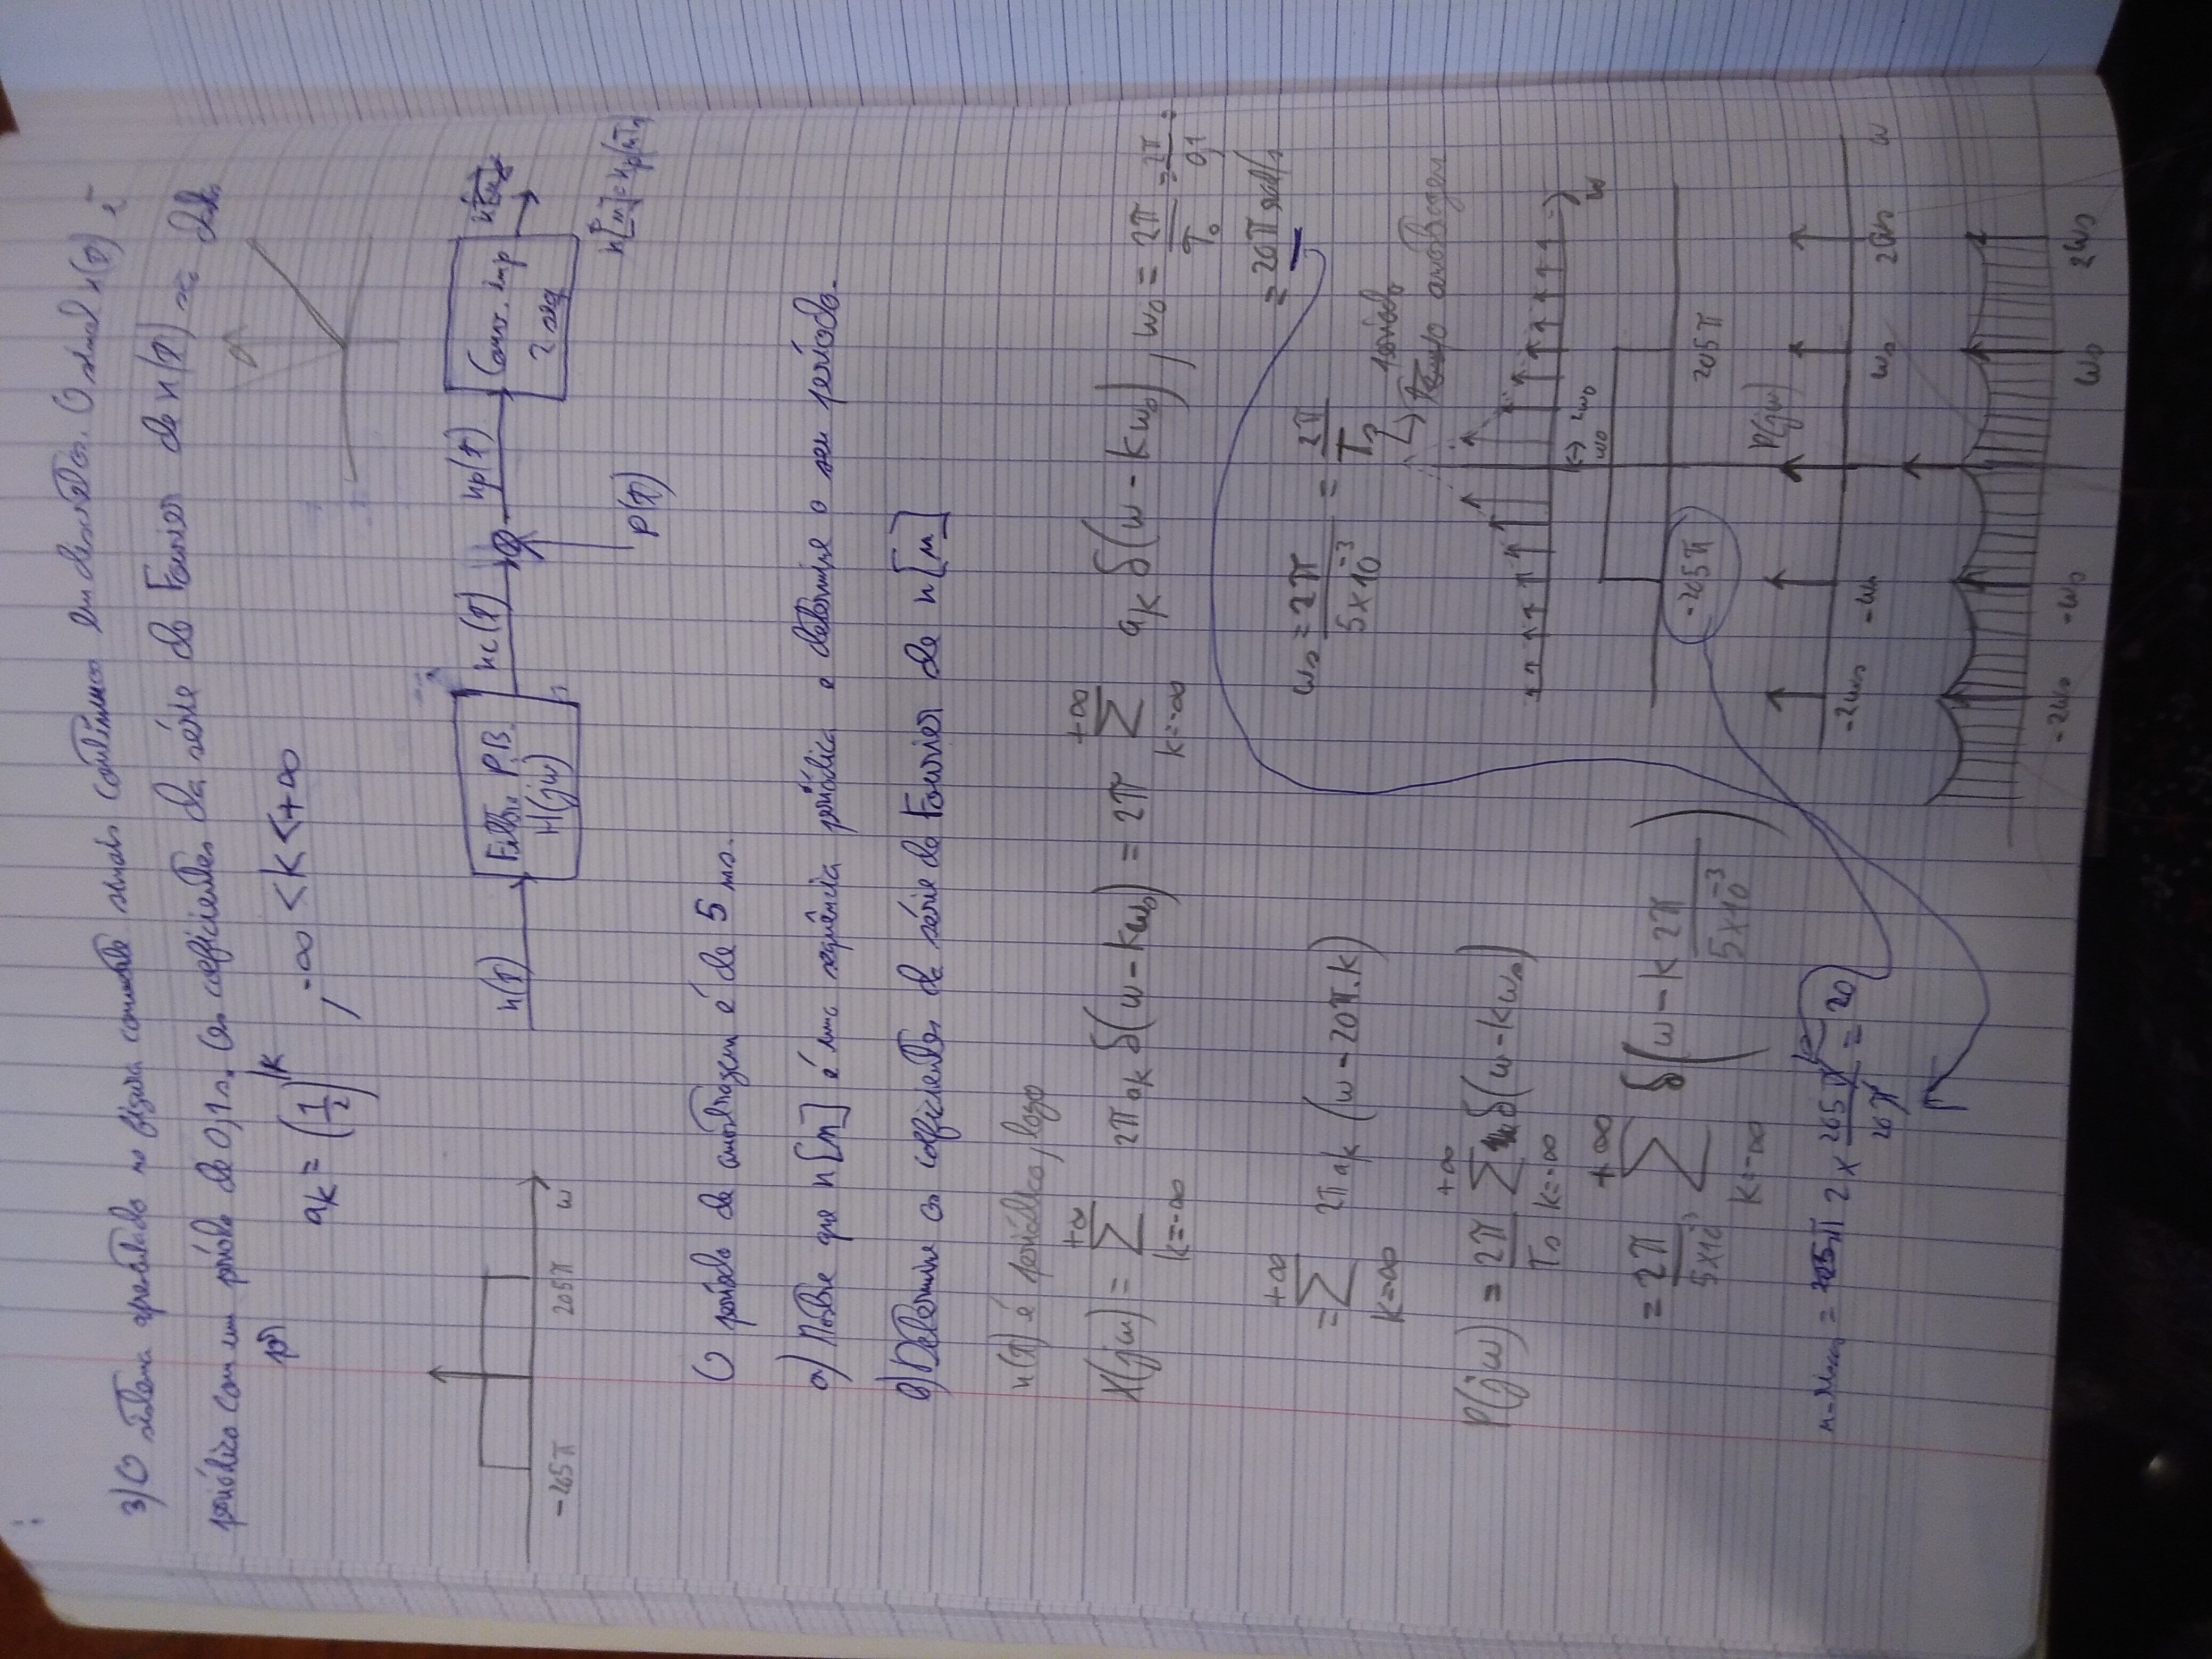 3) O sistema apresentado na figura converte sinais contínuos em discretos. O sinal x(t) é
periódico com um período de 0,1s. Os coeficientes da série de Fourier de x(t) são dados
por
ak = (1/2)^|k| , -∞ < k < +∞
-205π 205π ω
x(t) Filtro P.B. H(jω) xc(t) xp(t) Conv. imp 2 seq
p(t)
x[n] = xp(nTs)
O período de amostragem é de 5 ms.
a) Mostre que x[n] é uma sequência periódica e determine o seu período.
b) Determine os coeficientes da série de Fourier de x[n]
x(t) é periódico, logo
X(jω) = ∑ k=-∞ +∞ 2π ak δ(ω - kω0) = 2π ∑ k=-∞ +∞ ak δ(ω - kω0) , ω0 = 2π/T0 = 2π/0,1 =
= 20π rad/s
= ∑ k=-∞ +∞ 2π ak (ω - 20π.k)
ωs = 2π/5×10^-3 = 2π/Ts
período
amostragem
P(jω) = 2π/Ts ∑ k=-∞ +∞ δ(ω - kωs)
ω0 2ω0 ω
= 2π/5×10^-3 ∑ k=-∞ +∞ δ(ω - k 2π/5×10^-3)
-205π 205π
P(jω)
2 × 205π/20π = 20
-2ωs -ωs ωs 2ωs ω
-2ωs -ωs ωs 2ωs